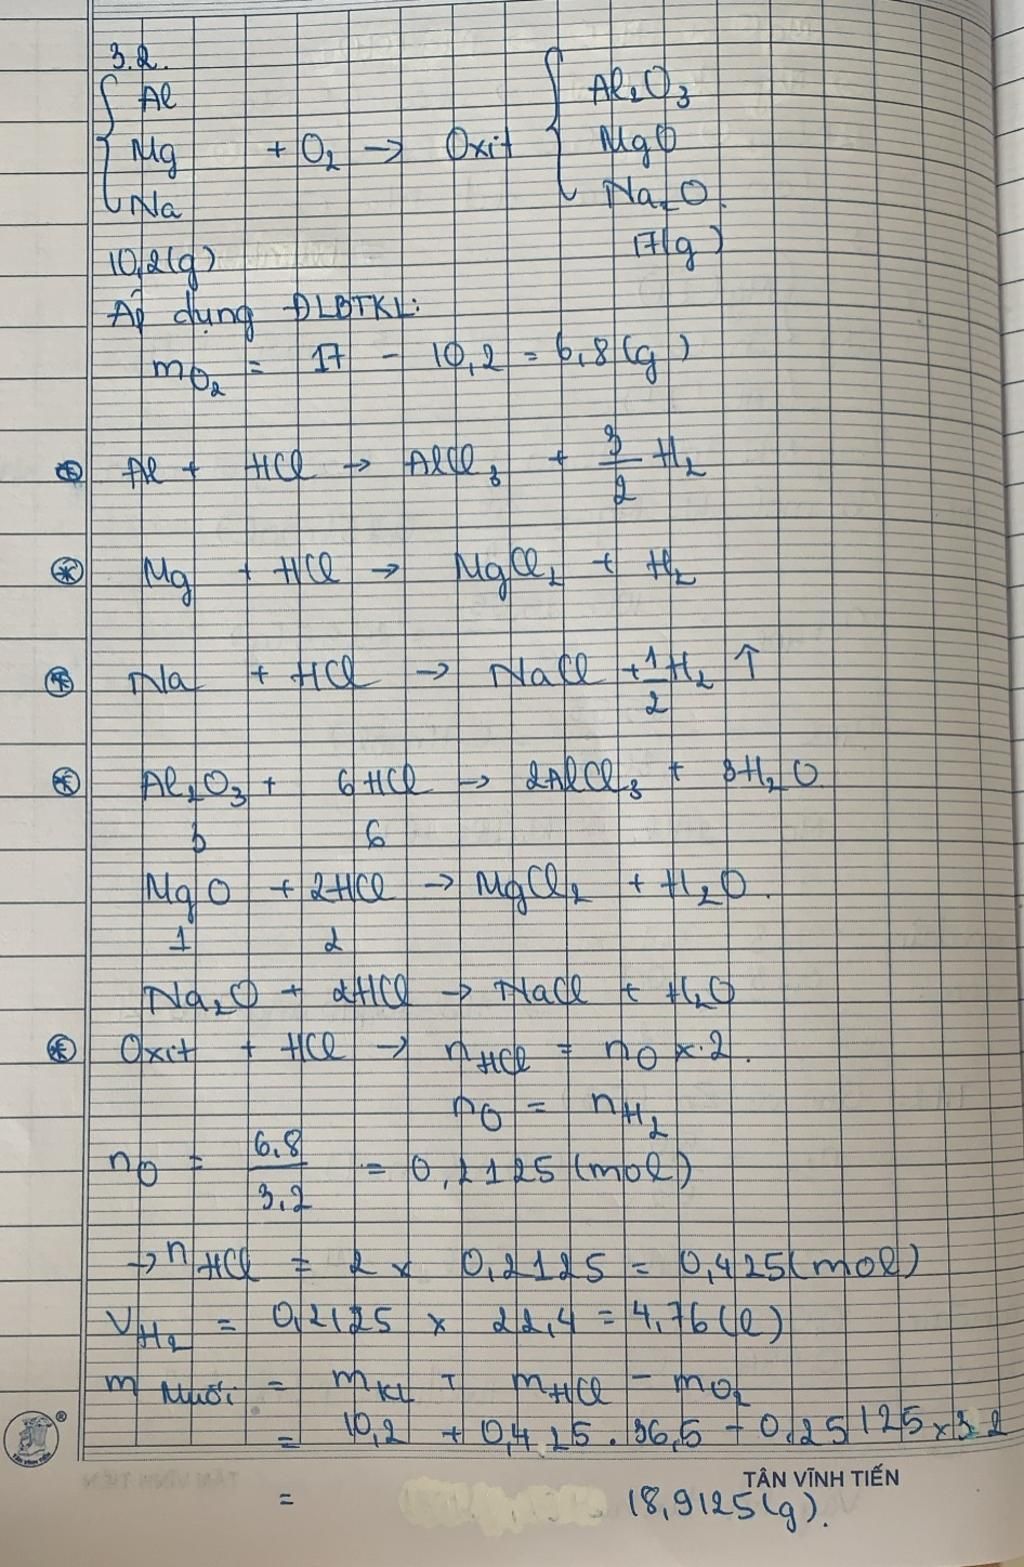 3.2.
{ Al
Mg + O₂ → Oxit { Al₂O₃
MgO
Na
Na₂O.
10,2(g)
17(g)
Áp dụng ĐLBTKL:
m O₂ = 17 - 10,2 = 6,8(g)
Al + HCl → AlCl₃ + 3/2 H₂
Mg + HCl → MgCl₂ + H₂
Na + HCl → NaCl + 1/2 H₂ ↑
Al₂O₃ + 6HCl → 2AlCl₃ + 3H₂O
6
MgO + 2HCl → MgCl₂ + H₂O.
1 2
Na₂O + 2HCl → NaCl + H₂O
Oxit + HCl → n HCl = n O × 2.
n O = n H₂
n O = 6,8/3,2 = 0,2125 (mol)
→ n HCl = 2 × 0,2125 = 0,425(mol)
V H₂ = 0,2125 × 22,4 = 4,76(l)
m Muối = m KL + m HCl - m O₂
= 10,2 + 0,425 . 36,5 - 0,25125 × 32
TÂN VĨNH TIẾN
= 18,9125(g).